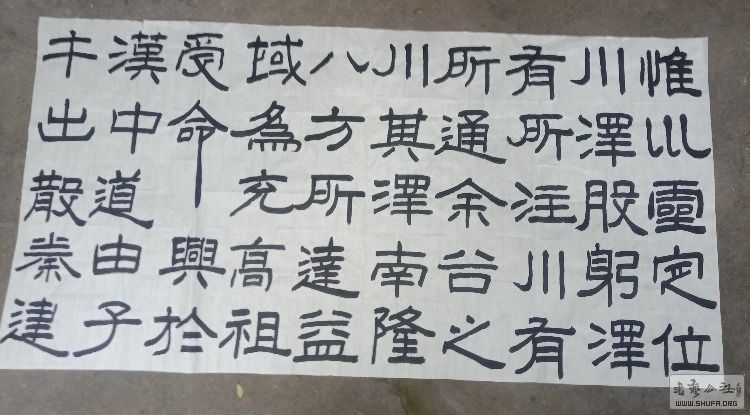 惟巛靈定位
川澤股躬澤
有所注川有
所通余谷之
川其澤南隆
八方所達益
域為充高祖
受命興於
漢中道由子
午出散秦建
书法公社
WWW.SHUFA.ORG